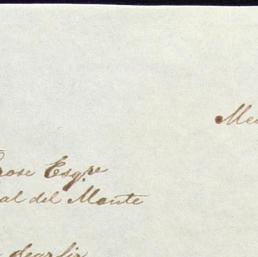 Me
rose Esqre
al del Monte
dear sir